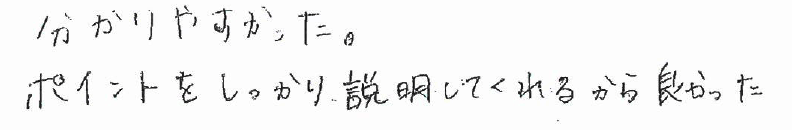 分かりやすかった。
ポイントをしっかり説明してくれるから良かった